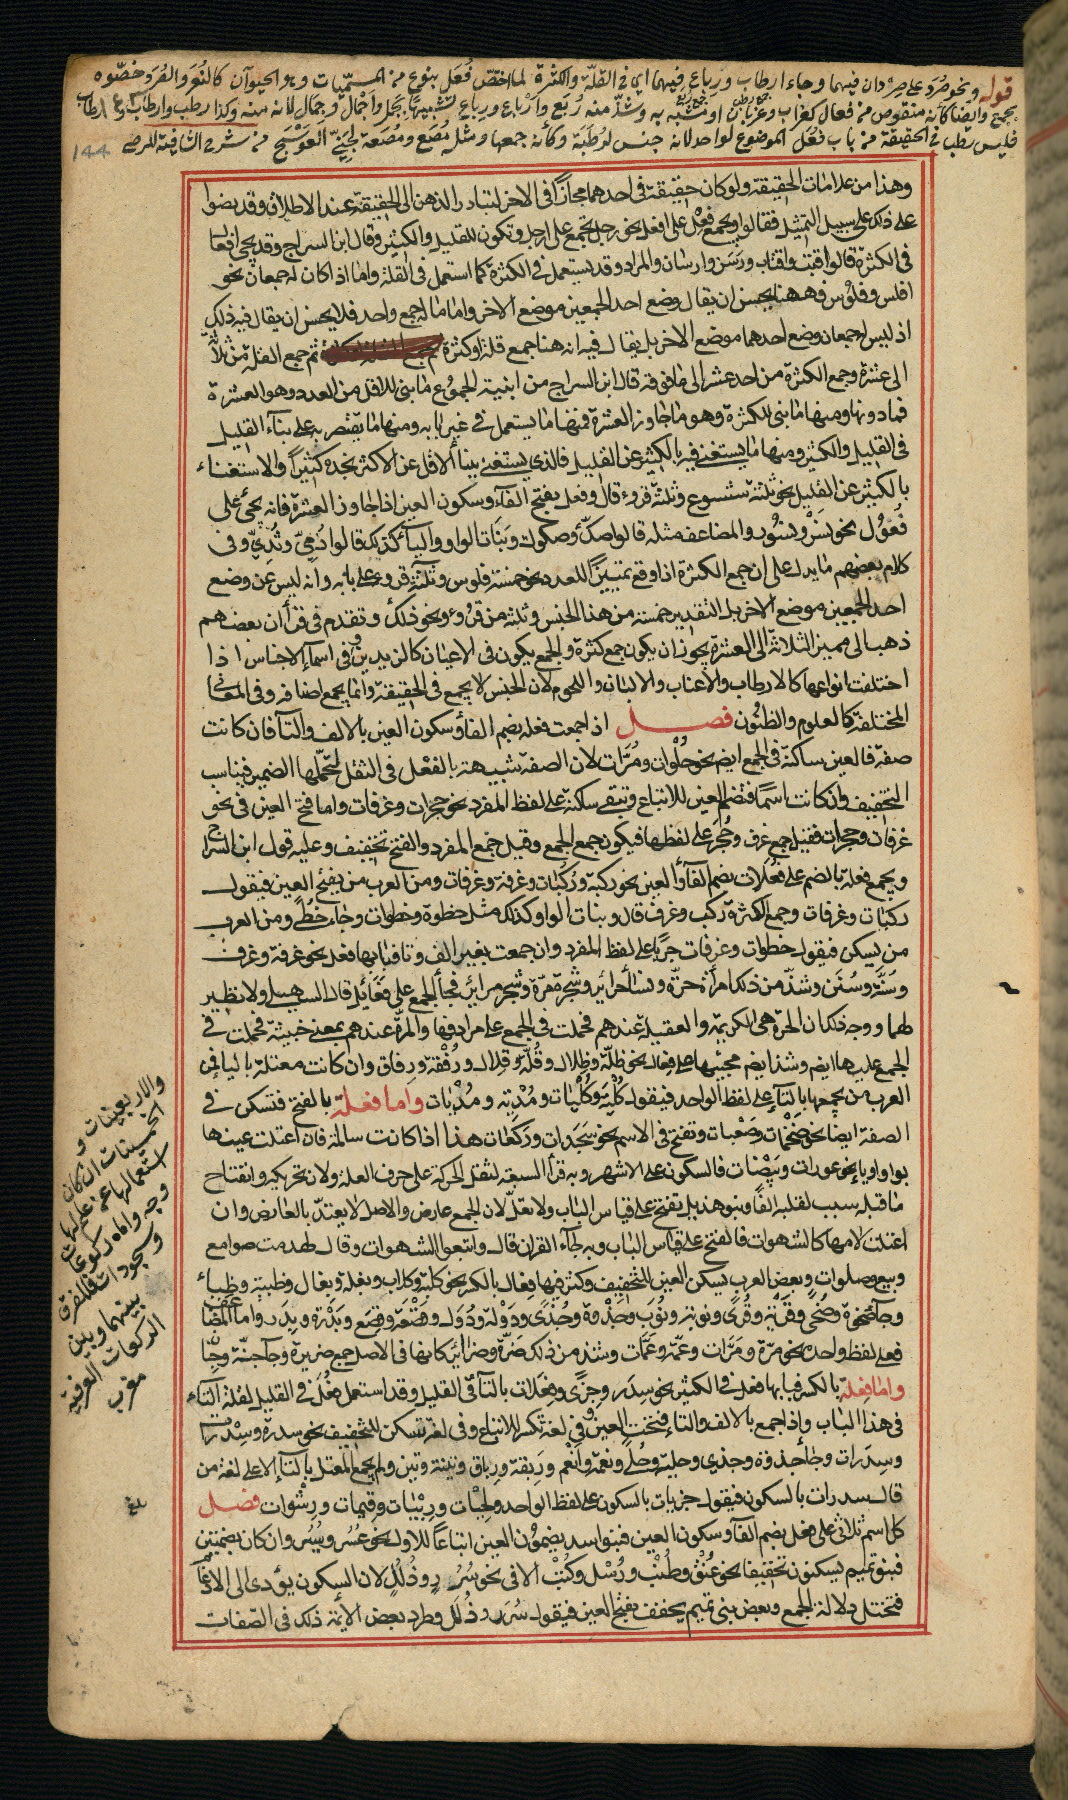 قوله ونحو صُرَد على صِرْدان فيهما وجاء ارطاب ورباع فيهما اي في القلة والكثرة لما اختص فُعَل بنوع من المسميات وهو الحيوان كالنُغَر والصُرَد خصّوه
بجمع وايضا كأنه منقوص من فعال كغراب وغربان او مشبه به وشذّ منه رُبَع وارْباع ورباع تشبيها بجمل واجْمال وجِمال لانه منه وكذا رطب وارطاب
فليس رطب في الحقيقة من باب فُعَل الموضوع لواحد لانه جنس لرُطبة وكأنه جمعها ومثله مُصَع ومُصَعة لجَنِيّ العوسج من شرح الشافية للرضي
144
وهذا من علامات الحقيقة ولو كان حقيقة في احدهما مجازا في الاخر لتبادر الذهن الى الحقيقة عند الاطلاق وقد نصوا
على ذلك على سبيل التمثيل فقالوا ويجمع فِعْل على افعل نحو رجل تجمع على ارجل وتكون للقليل والكثير وقال ابن السراج وقد يجئ افعال
في الكثرة قالوا قتب واقتاب ورَسَن وارسان والمراد وقد يستعمل في الكثرة كما استعمل في القلة واما اذا كان له جمعان نحو
افلس وفلوس فههنا يحسن ان يقال وضع احد الجمعين موضع الاخر واما ما له جمع واحد فلا يحسن ان يقال فيه ذلك
اذ ليس له جمعان وضع احدهما موضع الاخر بل يقال فيه انه هنا جمع قلة او كثرة ثم جمع القلة من ثلاثة
الى عشرة وجمع الكثرة من احد عشر الى ما فوقه قال ابن السراج من ابنية الجموع ما بني للاقل من العدد وهو العشرة
فما دونها ومنها ما بني للكثرة وهو ما جاوز العشرة فمنها ما يستعمل في غير بابه ومنها ما يقتصر به على بناء القليل
في القليل والكثير ومنها ما يستغنى فيه بالكثير عن القليل فالذي يستغنى ببناء الاقل عن الاكثر نجده كثيراً والاستغناء
بالكثير عن القليل نحو ثلثة شسوع وثلثة قروء قال وفعل بفتح الفاء وسكون العين اذا جاوز العشرة فانه يجئ على
فُعُول نحو نَسْر ونُسُور والمضاعف مثله قالوا صكّ وصكوك وبَنَات الواو والياء كذلك قالوا دُمِيّ وثُدِيّ وفي
كلام بعضهم ما يدل على ان جمع الكثرة اذا وقع تمييزاً للعدد نحو خمسة فلوس وثلثة قروء على بابه وانه ليس عن وضع
احد الجمعين موضع الاخر بل التقدير خمسة من هذا الجنس وثلثة من قروء ونحو ذلك وتقدم في قرأ ان بعضهم
ذهب الى مميز الثلاثة الى العشرة يجوز ان يكون جمع كثرة والجمع يكون في الاعيان كالزيدين وفي اسماء الاجناس اذا
اختلفت انواعها كالارطاب والاعناب والالبان واللحوم لان الجنس لا يجمع في الحقيقة وانما يجمع اصنافه وفي المعاني
المختلفة كالعلوم والظنون فصل اذا جمعت فعلة بضم الفاء وسكون العين بالالف والتاء فان كانت
صفة فالعين ساكنة في الجمع ايضا نحو حُلْوات ومُرّات لان الصفة شبيهة بالفعل في الثقل لتحمّلها الضمير فيناسب
التخفيف وان كانت اسمًا فتضم العين للاتباع وتبقى ساكنة على لفظ المفرد نحو حجرات وغرفات واما فتح العين في نحو
غرفات وحجرات فقيل جمع غرف وحُجَر على لفظها فيكون جمع الجمع وقيل جمع المفرد والفتح تخفيف وعليه قول ابن السراج
ويجمع فعلة بالضم على فُعُلات بضم الفاء والعين نحو ركبة ورُكُبات وغرفة وغرفات ومن العرب من يفتح العين فيقول
ركبات وغرفات وجمع الكثرة ركب وغرف قال وبنات الواو كذلك مثل خطوة وخطوات وجاء خُطًى ومن العرب
من يسكن فيقول خطوات وغرفات جريًا على لفظ المفرد وان جمعت بغير الف وتاء فبابها فعل نحو غرفة وغرف
وسُنَّة وسُنَن وشذّ من ذلك امرأة حرّة ونساء حرائر وشجرة مُرّة وشجر مرائر فجاء الجمع على فعائل قال السهيلي ولا نظير
لهما ووجه ذلك ان الحرة هي الكريمة والعقيلة عندهم فحملت في الجمع على مرادفها والمرّة عندهم بمعنى خبيثة فحملت في
الجمع عليها ايضا وشذ ايضا مجيئها على فعال نحو ظلّة وظلال وقُلّة وقِلال ورُفْقة ورفاق وان كانت معتلة بالياء فمن
العرب من يجمعها بالتاء على لفظ الواحد فيقول كُلْيَة وكُلْيات ومُدْية ومُدْيات واما فعلة بالفتح فتسكن في
الصفة ايضا نحو ضَخْمات وصَعْبات وتفتح في الاسم نحو سَجَدات ورَكَعات هذا اذا كانت سالمة فان اعتلت عينها
بواو او ياء نحو عورات وبَيْضات فالسكون على الاشهر وبه قرأ السبعة لثقل الحركة على حرف العلة ولان تحريكه وانفتاح
ما قبله سبب لقلبه الفا وبنو هذيل تفتح على قياس الباب ولا تعلّ لان الجمع عارض والاصل لا يعتدّ بالعارض وان
اعتلت لامها كالشهوات فالفتح على قياس الباب وبه جاء القران قال واتبعوا الشهوات وقال لهدمت صوامع
وبيع وصلوات وبعض العرب يسكن العين للتخفيف وكثر فيها فعال بالكسر نحو كلبة وكلاب وبغلة وبغال وظبية وظباء
وجاء ضَحْوة وضُحًى وقَرْية وقُرًى ونوبة ونُوَب وجذوة وجُذًى ودَوْلة ودُوَل وقَصْعة وقِصَع وبَدْرة وبِدَر واما المضاعف
فعلى لفظ واحده نحو مَرّة ومَرّات وعَمّة وعَمّات وشذ من ذلك ضَرّة وضرائر كأنها في الاصل جمع ضريرة وجاء جنّة وجِنَان
واما فِعلة بالكسر فبابها فعل في الكثير نحو سِدَر وجِزًى وفِعَلات بالتاء في القليل وقد استعمل فِعَل في القليل لقلة التاء
في هذا الباب واذا جمع بالالف والتاء فتحت العين وفي لغة تكسر للاتباع وفي لغة تسكن للتخفيف نحو سدرة وسِدْرات
وسِدِرات وجاء جذوة وجذي وحلية وحُلًى ونعمة وانْعُم ورِبقة ورباق وتينة وتين ولم يجمع المعتل بالتاء الا على لغة من
قال سدرات بالسكون فيقول جزيات بالسكون على لفظ الواحد ولِحْيات ورِيْبات وقِيمات ورِشْوات فصل
كل اسم ثلاثي على فعل بضم الفاء وسكون العين فبنو اسد يضمون العين اتباعًا للاول نحو عُسُر ويُسُر وان كان بضمتين
فبنو تميم يسكنون تخفيفا نحو عُنْق وطُنْب ورُسْل وكُتْب الا في نحو سُرُر وذُلُل لان السكون يؤدي الى الادغام
فتختل دلالة الجمع وبعض بني تميم يخفف بفتح العين فيقول سُرَر وذُلَل وطرد بعض الائمة ذلك في الصفات
والاربعينات و
الخمسينات ان كان
استعمالها
وجه واما ركوعات
وسجودات فالفرق
بينهما وبين
الركعات العرفية
مغرب
بلغ